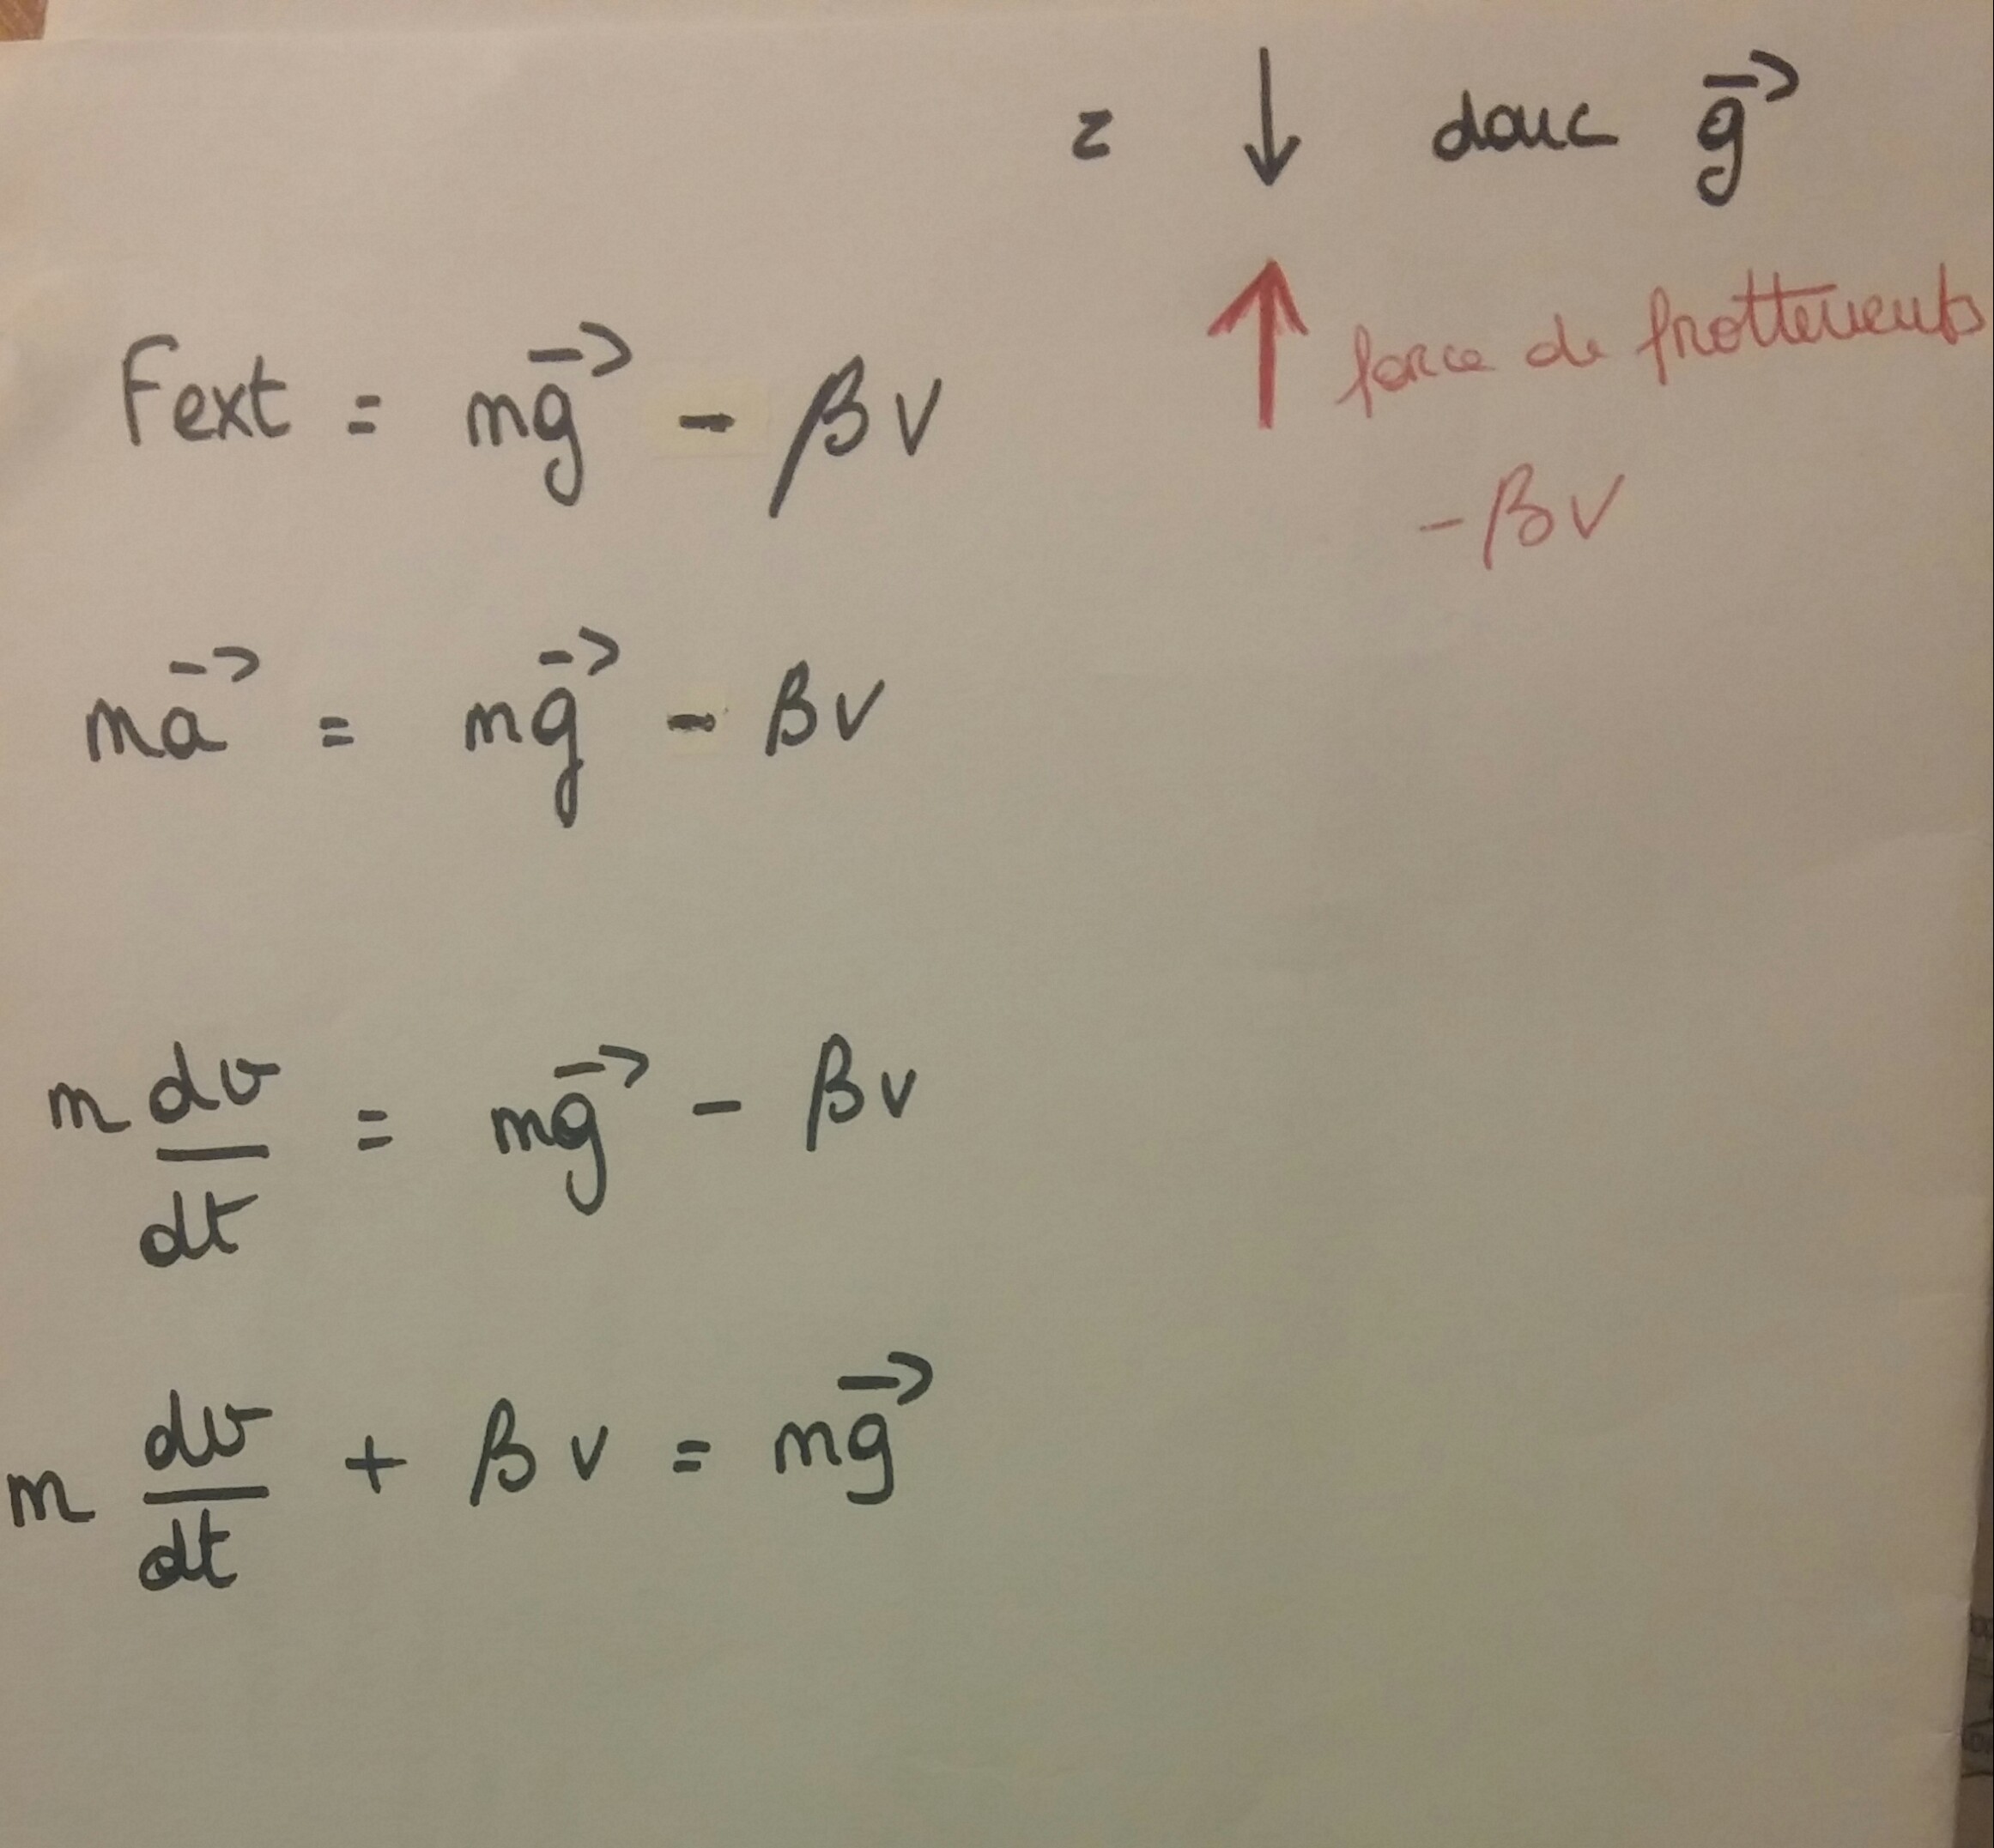 z ↓ donc g⃗
↑ force de frottements
Fext = mg⃗ - βv
- βv
ma⃗ = mg⃗ - βv
m dv/dt = mg⃗ - βv
m dv/dt + βv = mg⃗